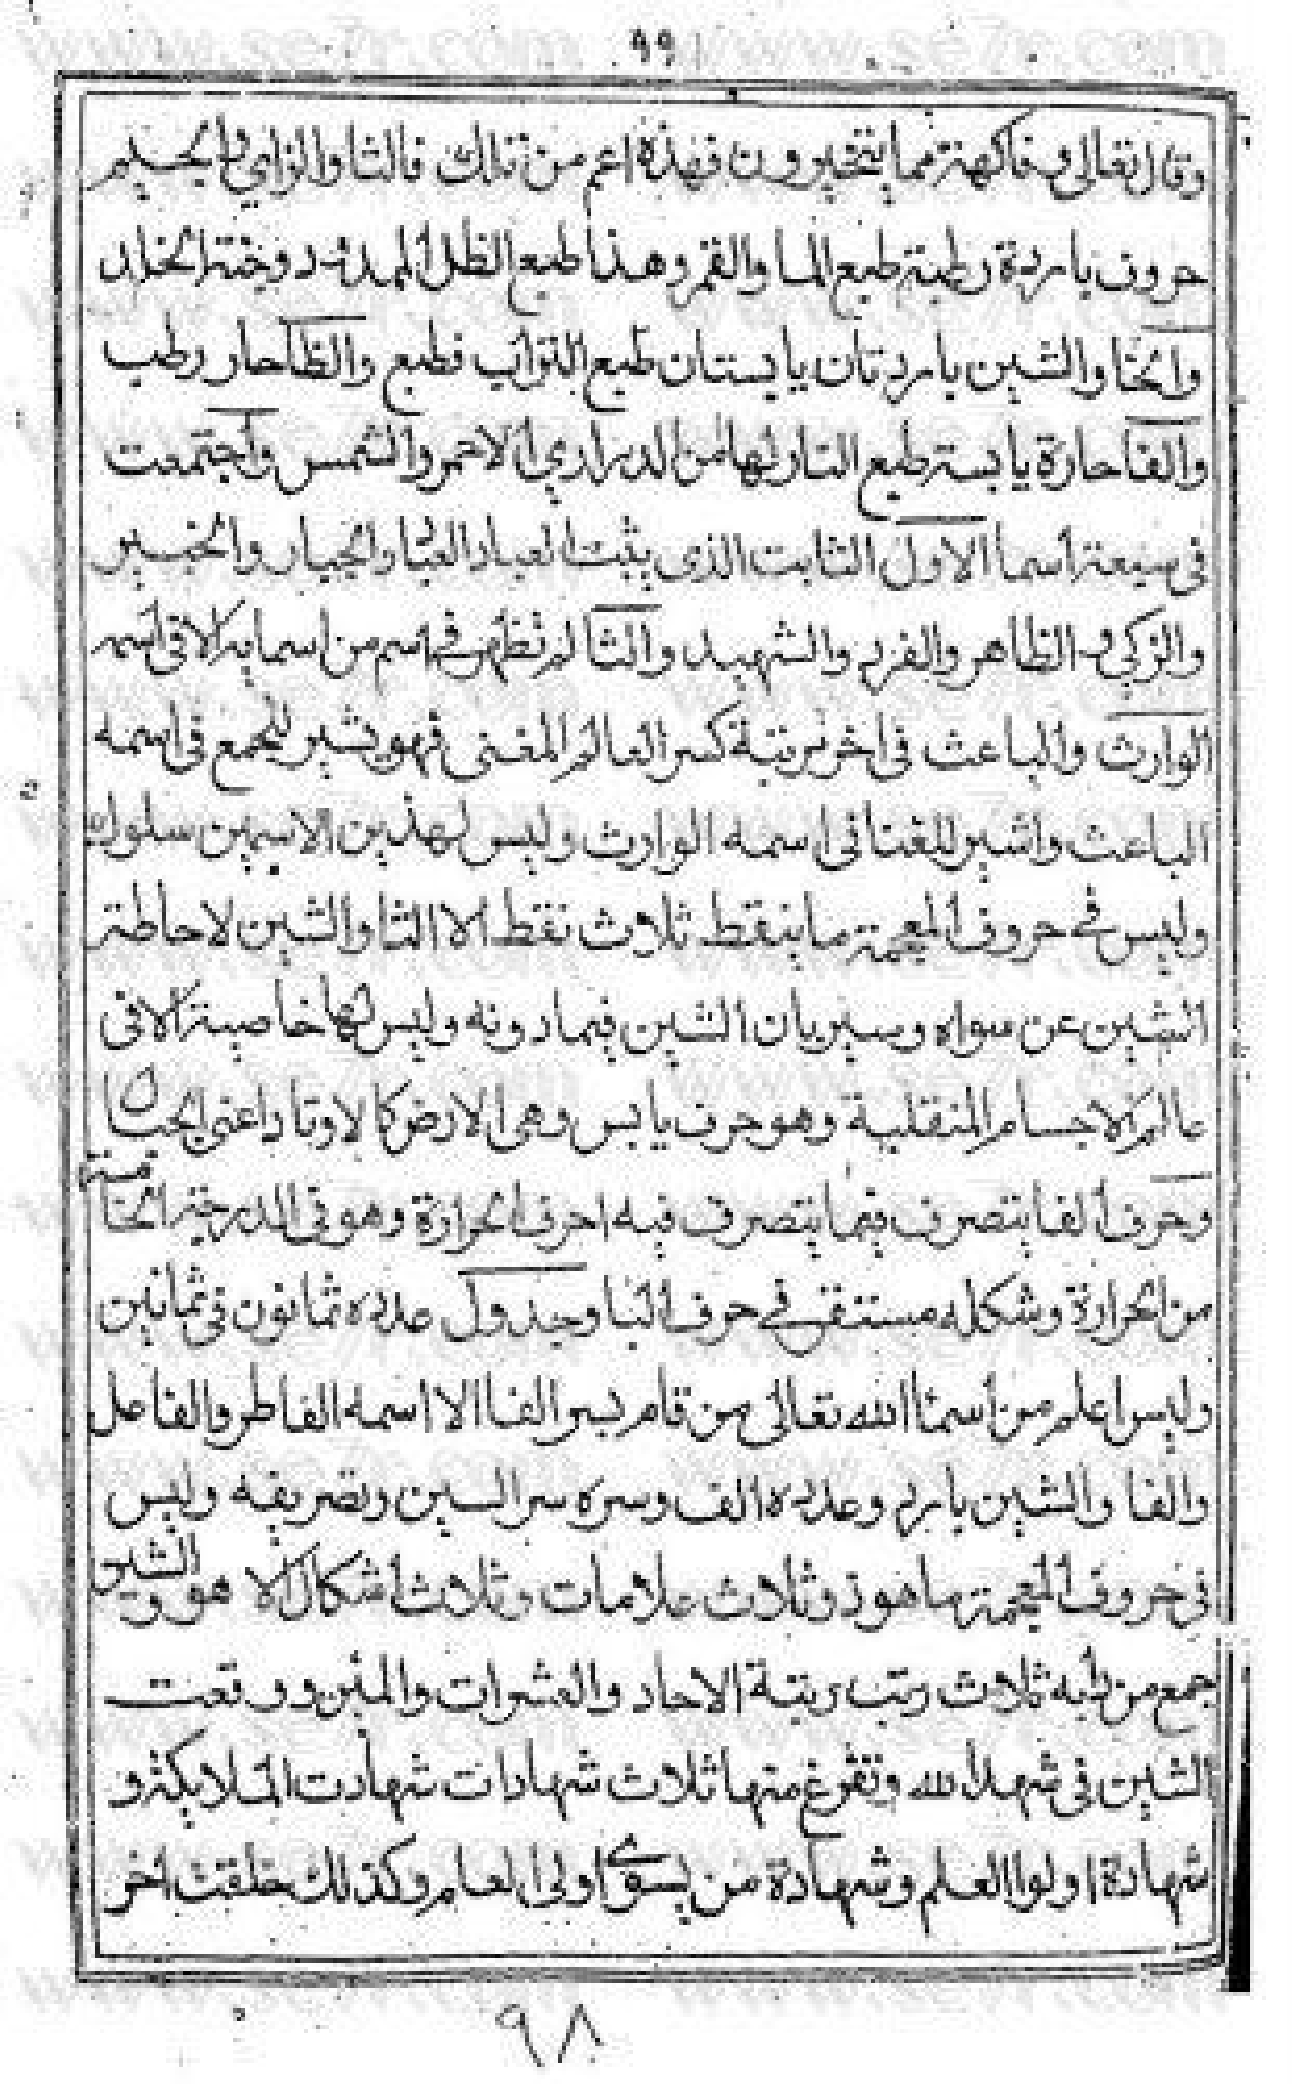 ٩٩
وقال تعالى وفاكهة مما يتخيرون فهذه اعم من تلك فالثا والزاي والجيم
حروف باردة رطبة طبع الما والقمر وهذا طبع الظل الممدود وجنة الخلد
والخا والشين باردتان يابستان طبع التراب فطبع والظا حار رطب
والفا حارة يابسة طبع النار لها من الدراري الاحمر والشمس واجتمعت
فى سبعة اسما الاول الثابت الذى يثبت العباد والجبار والخبير
والزكي والظاهر والفرد والشهيد والثا لم تظهر فى اسم من اسمايه الا فى اسمه
الوارث والباعث فى اخر مرتبة كسر العالم المغنى فهو يشير للجمع فى اسمه
الباعث واشير للغنا فى اسمه الوارث وليس لهذين الاسمين سلوك
وليس فى حروف المعجمة ما ينقط ثلاث نقط الا الثا والشين لاحاطة
الشين عن سواه وسريان الشين فيما دونه وليس لها خاصية الا فى
عالم الاجسام المنقلبة وهو حرف يابس وهى الارض كالاوتاد اعنى الجبال
وحرف الفا يتصرف فيما يتصرف فيه احرف الحرارة وهو فى الدرجة الخامسة
من الحرارة وشكله مستنقى فى حرف البا وجدول عدده ثمانون فى ثمانين
وليس اعلم من اسما الله تعالى من قام بسر الفا الا اسمه الفاطر والفاعل
والفا والشين بارد وعدده الف وسره سر السين وتصريفه وليس
فى حروف المعجمة ما هو ذو ثلاث علامات وثلاث اشكال الا هو والشين
جمع من طبه ثلاث رتب رتبة الاحاد والعشرات والمئين ووقعت
الشين فى شهد الله وتفرغ منها ثلاث شهادات شهادت الملايكة و
شهادة اولوا العلم وشهادة من سوى اولى العلم وكذلك خلقت اخر
٩٨